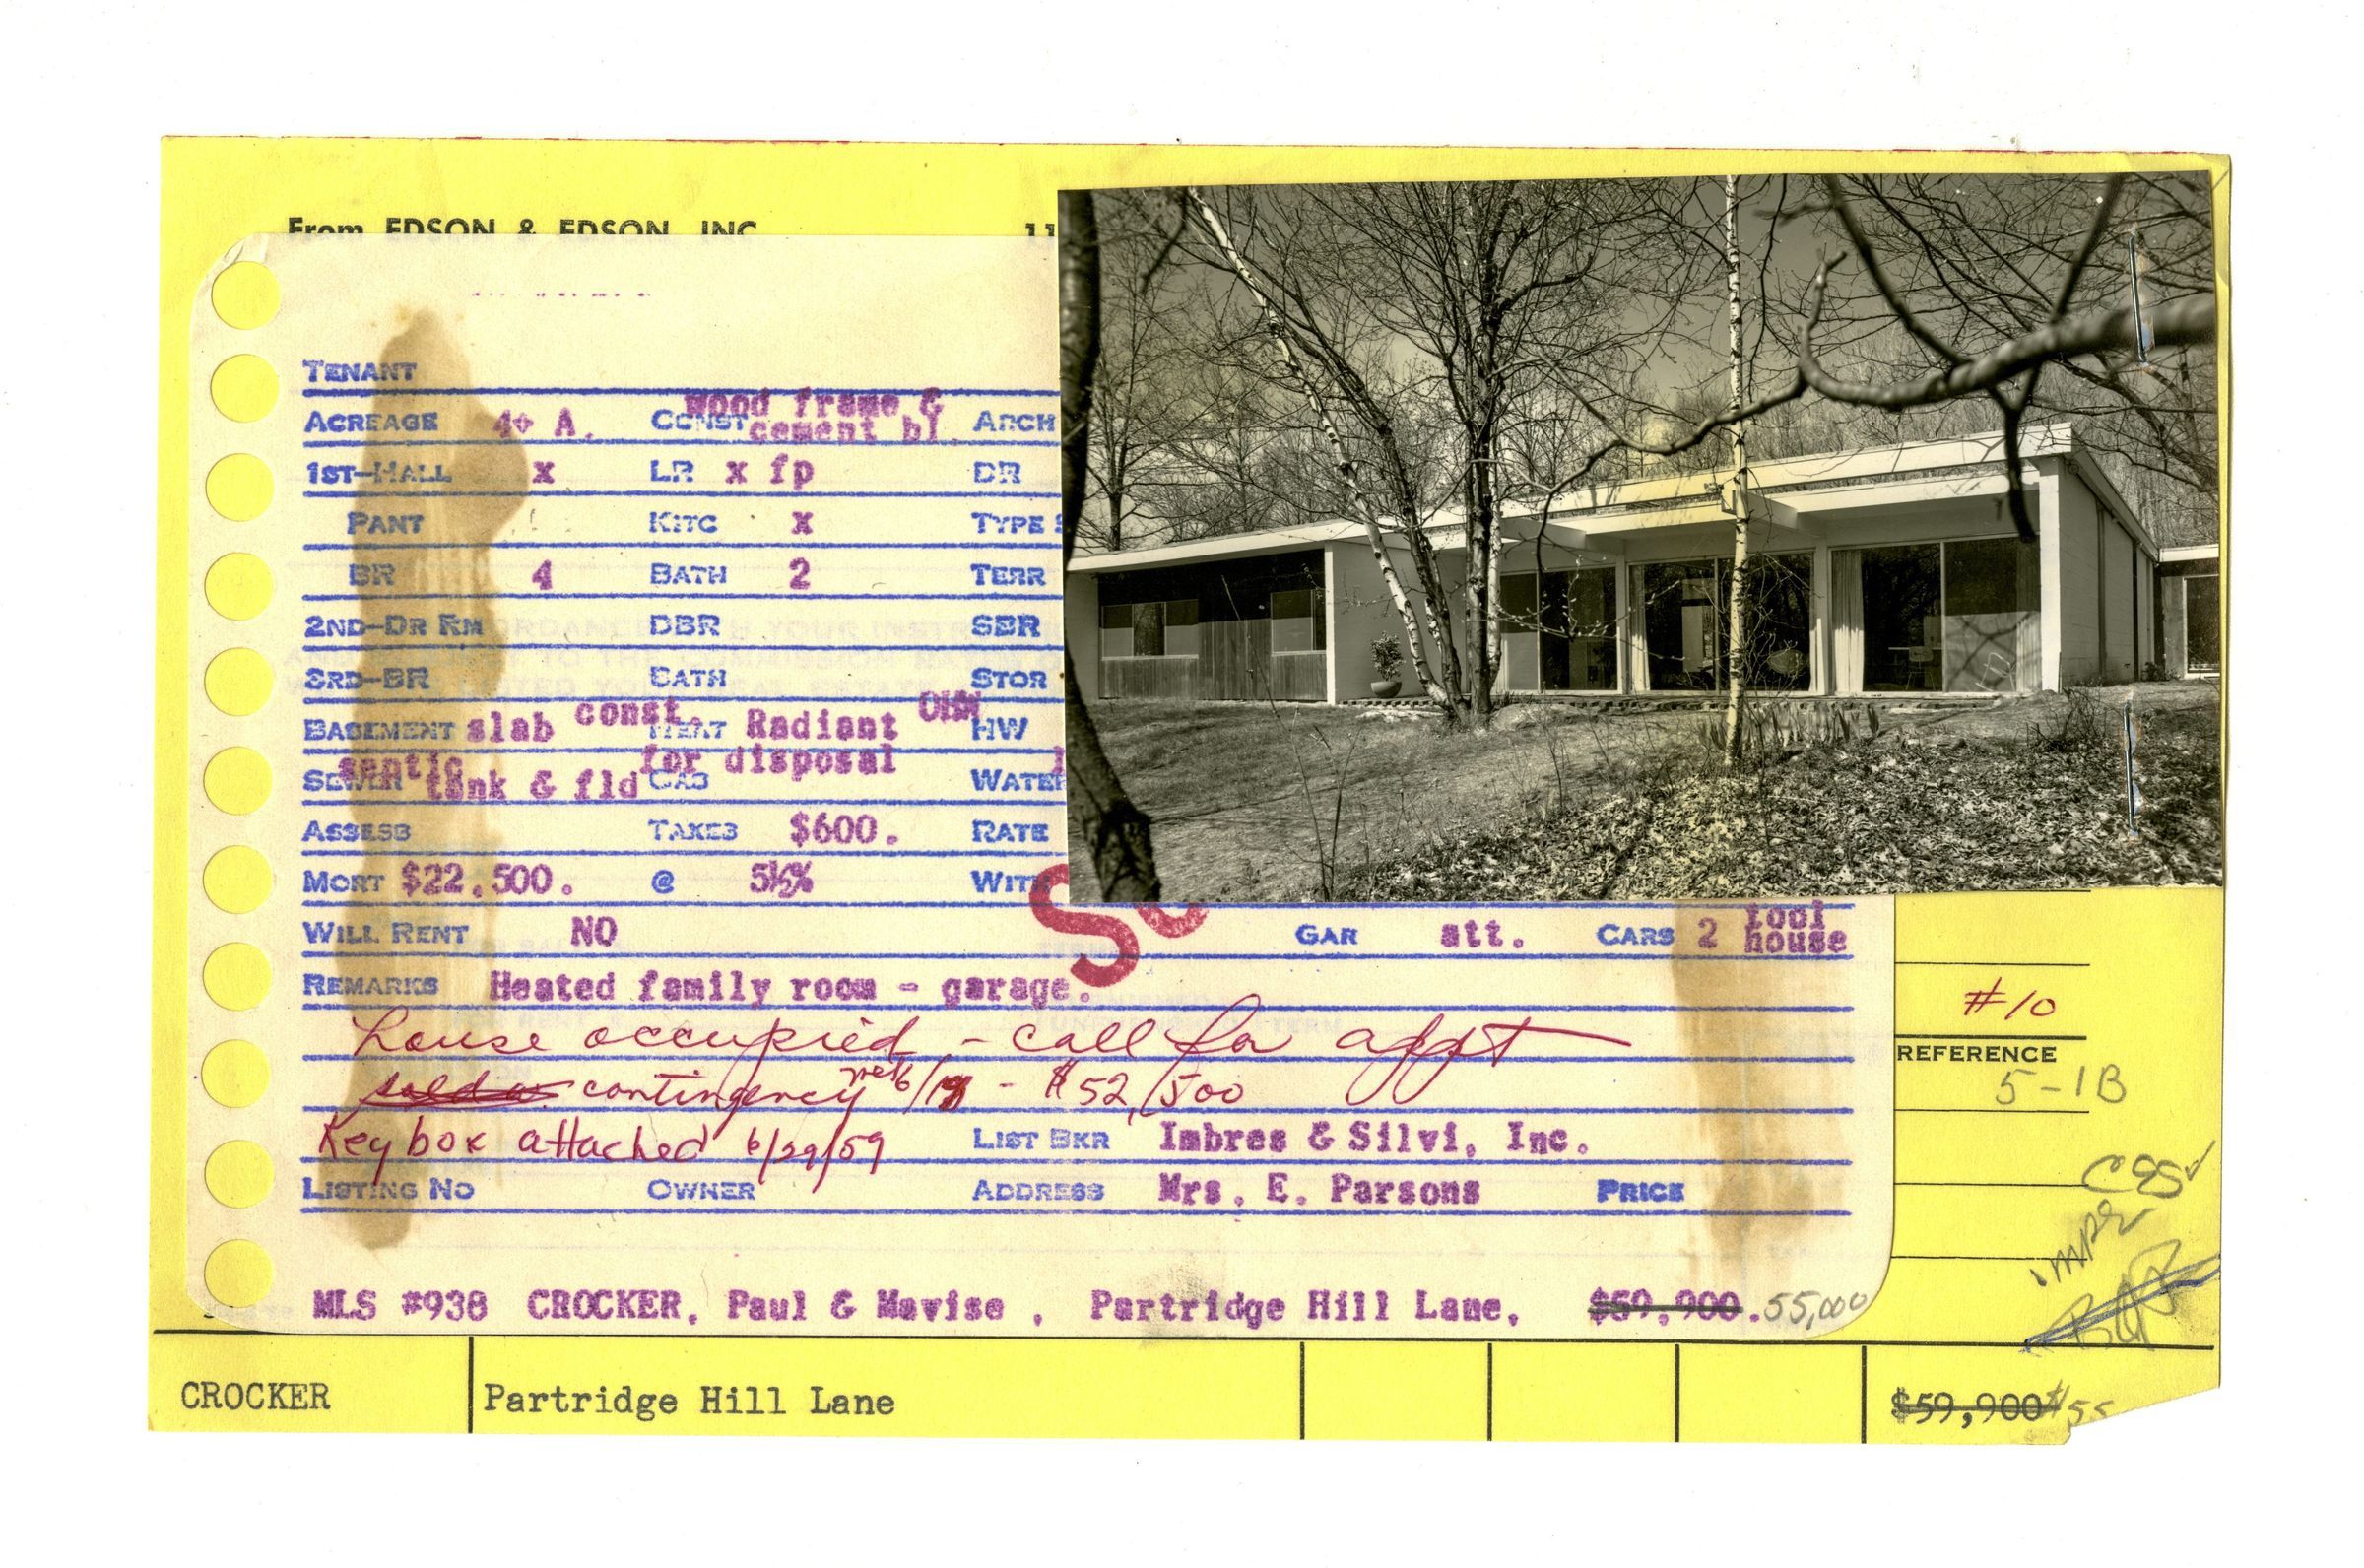 From EDSON & EDSON, INC. 11
TENANT
ACREAGE 4+ A. CONST wood frame & cement bl. ARCH
1ST-HALL x LR x fp DR
PANT KITC x TYPE
BR 4 BATH 2 TERR
2ND-DR RM DBR SBR
3RD-BR BATH STOR
BASEMENT slab const. HEAT Radiant OHW HW
SEWER septic tank & fld for disposal CAB WATER
ASSESS TAXES $600. RATE
MORT $22,500. @ 5½% WITH
WILL RENT NO GAR att. CARS 2 tool house
REMARKS Heated family room - garage.
house occupied - call for appt #10
contingency - $52,500 REFERENCE
5-1B
Key box attached 6/29/59 LIST BKR Imbres & Silvi, Inc.
LISTING NO OWNER ADDRESS Mrs. E. Parsons PRICE
MLS #938 CROCKER, Paul & Mavise , Partridge Hill Lane, $59,900. 55,000
CROCKER Partridge Hill Lane $59,900 $55